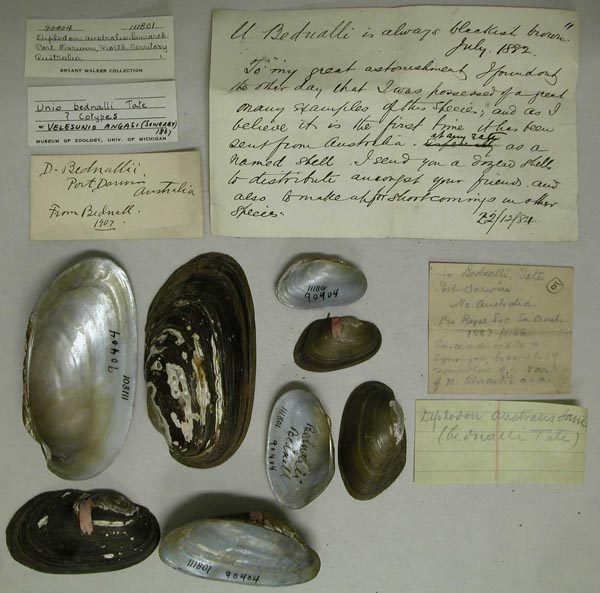 90404 111801
Diplodon australis Lamarck
Port Darwin, North Territory
Australia
BRYANT WALKER COLLECTION
Unio bednalli Tate
? Cotypes
= VELESUNIO ANGASI (SOWERBY)
1867
MUSEUM OF ZOOLOGY, UNIV. OF MICHIGAN
D. Bednallii,
Port Darwin
Australia
From Bednall.
1907
U. Bednalli is always blackish brown"
July. 1882.
To my great astonishment I found out
the other day that I was possessed of a great
many examples of this species; and as I
believe it is the first time it has been
sent from Australia. at any rate as a
named shell. I send you a dozen shells
to distribute amongst your friends and
also to make up for shortcomings in other
species.
22/12/84
Unio Bednalli, Tate
Port Darwin
No Australia
Pro Royal Soc So. Aust.
1882
5
Since reduced to a
synonym,
Diplodon australis Lam
(bednalli Tate)
111801
90404
90404
108111
111801
Bednalli
90404
111801
90404